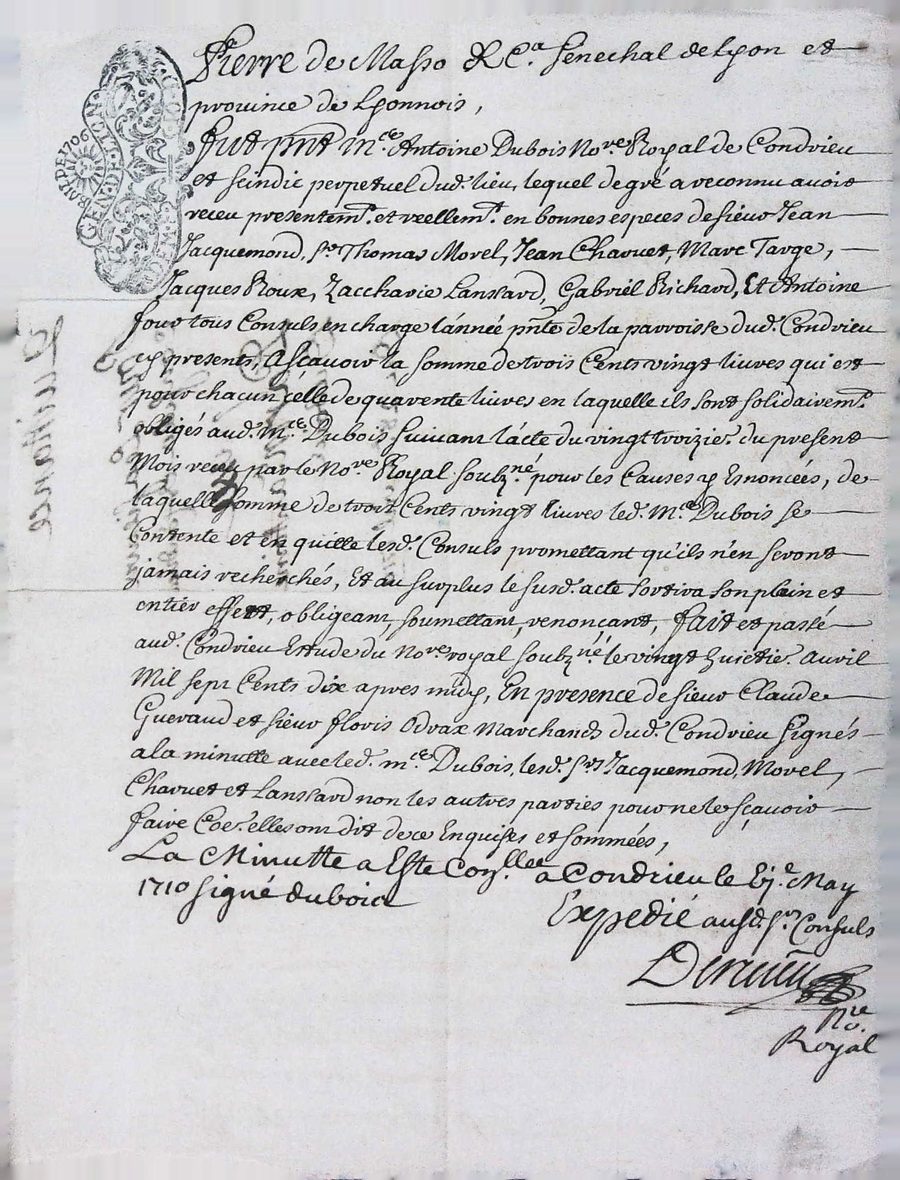 Pierre de Masso &C.a Senechal de Lyon et
province de Lyonnois,
fut pnt m.ce Antoine Dubois No.re Royal de Condrieu
et scindic perpetuel dud. lieu, lequel de gré a reconnu avoir
receu presentem.t et reellem.t en bonnes especes de sieur Jean
Jacquemond, Sr. Thomas Morel, Jean Charvet, Marc Targe,
Jacques Roux, Zaccharie Lanssard, Gabriel Richard, Et Antoine
four tous Consuls en charge l'année pnte de la parroisse dud. Condrieu
cy presents, Asçavoir la somme de trois Cents vingt livres qui est
pour chacun celle de quarente livres en laquelle ils sont solidairem.t
obligés aud. M.ce Dubois suivant l'acte du vingt troizie. du present
Mois receu par le No.re Royal soubz.né pour les Causes y Esnoncées, de
laquelle somme de troit Cents vingt livres led. M.ce Dubois se
Contente et en quitte lesd. Consuls promettant qu'ils n'en seront
jamais recherchés, Et au surplus le susd. acte sortira son plein et
entier effect, obligeant, soumettant, renoncant, fait et passé
aud. Condrieu Estude du No.re royal soubz.né le vingt huictie. Avril
Mil sept Cents dix apres midy, En presence de sieur Claude
Gueraud et sieur floris Odrax Marchands dud. Condrieu signés
a la minutte avec led. m.ce Dubois, lesd. Srs Jacquemond, Morel,
Charvet et Lanssard non les autres parties pour ne le sçavoir
faire Coe. elles ont dit de ce Enquises et sommées,
La Minutte a Esté Con.llee a Condrieu le may
1710 signé dubois
Expedié ausd. Srs Consuls
No.re
Royal
Quittance
GEN. DE LION